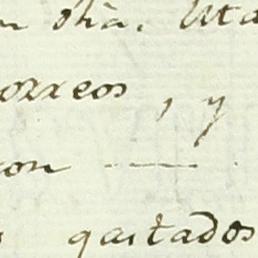 n dha. Uta
orreos, y
con ———.
s gastados